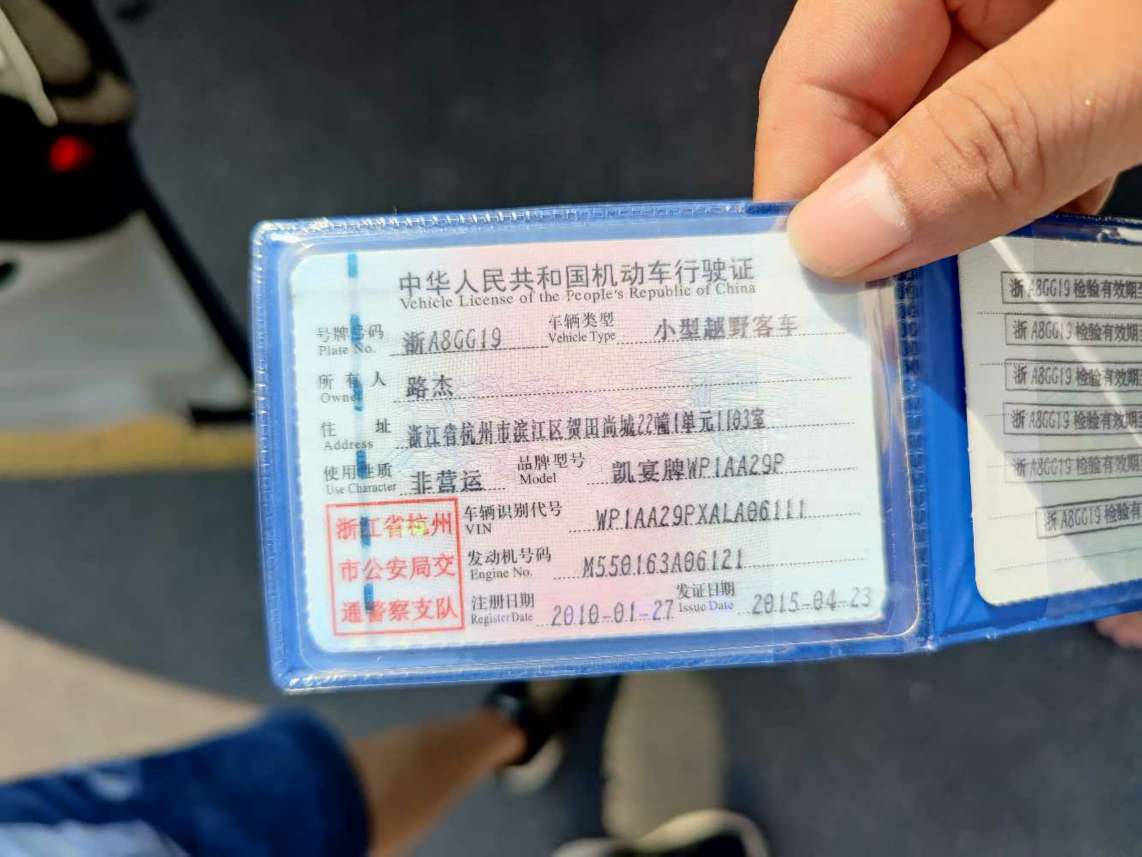 中华人民共和国机动车行驶证
Vehicle License of the People's Republic of China
号牌号码 浙A8GG19 车辆类型 小型越野客车
Plate No. Vehicle Type
所有人 路杰
Owner
住址 浙江省杭州市滨江区贺田尚城22幢1单元1103室
Address
使用性质 非营运 品牌型号 凯宴牌WP1AA29P
Use Character Model
浙江省杭州
市公安局交
通警察支队
车辆识别代号 WP1AA29PXALA06111
VIN
发动机号码 M550163A06121
Engine No.
注册日期 2010-01-27 发证日期 2015-04-23
Register Date Issue Date
浙A8GG19检验有效期
浙A8GG19检验有效期
浙A8GG19检验有效期
浙A8GG19检验有效期
浙A8GG19检验有效期
浙A8GG19检验有效